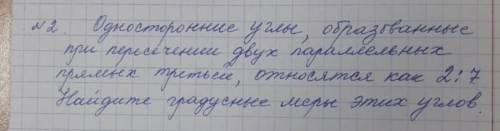 №2. Односторонние углы, образованные
при пересечении двух параллельных
прямых третьей, относятся как 2:7
Найдите градусные меры этих углов.